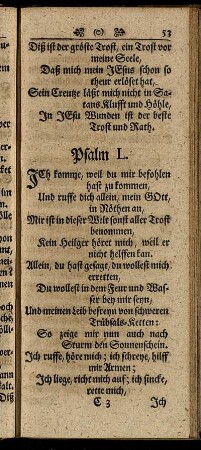 53
Diß ist der gröste Trost, ein Trost vor
meine Seele,
Daß mich mein JEsus schon so
theur erlöset hat,
Sein Creutze läßt mich nicht in Sa-
tans Klufft und Höhle,
In JESu Wunden ist der beste
Trost und Rath.
Psalm L.
ICh komme, weil du mir befohlen
hast zu kommen,
Und ruffe dich allein, mein GOtt,
in Nöthen an,
Mir ist in dieser Welt sonst aller Trost
benommen,
Kein Heilger höret mich, weil er
nicht helffen kan.
Allein, du hast gesagt, du wollest mich
erretten,
Du wollest in dem Feur und Was-
ser bey mir seyn,
Und meinen Leib befreyn von schweren
Trübsals-Ketten:
So zeige mir nun auch nach
Sturm den Sonnenschein.
Ich ruffe, höre mich; ich schreye, hilff
mir Armen;
Ich liege, richt mich auf; ich sincke,
rette mich,
C 3 Ich